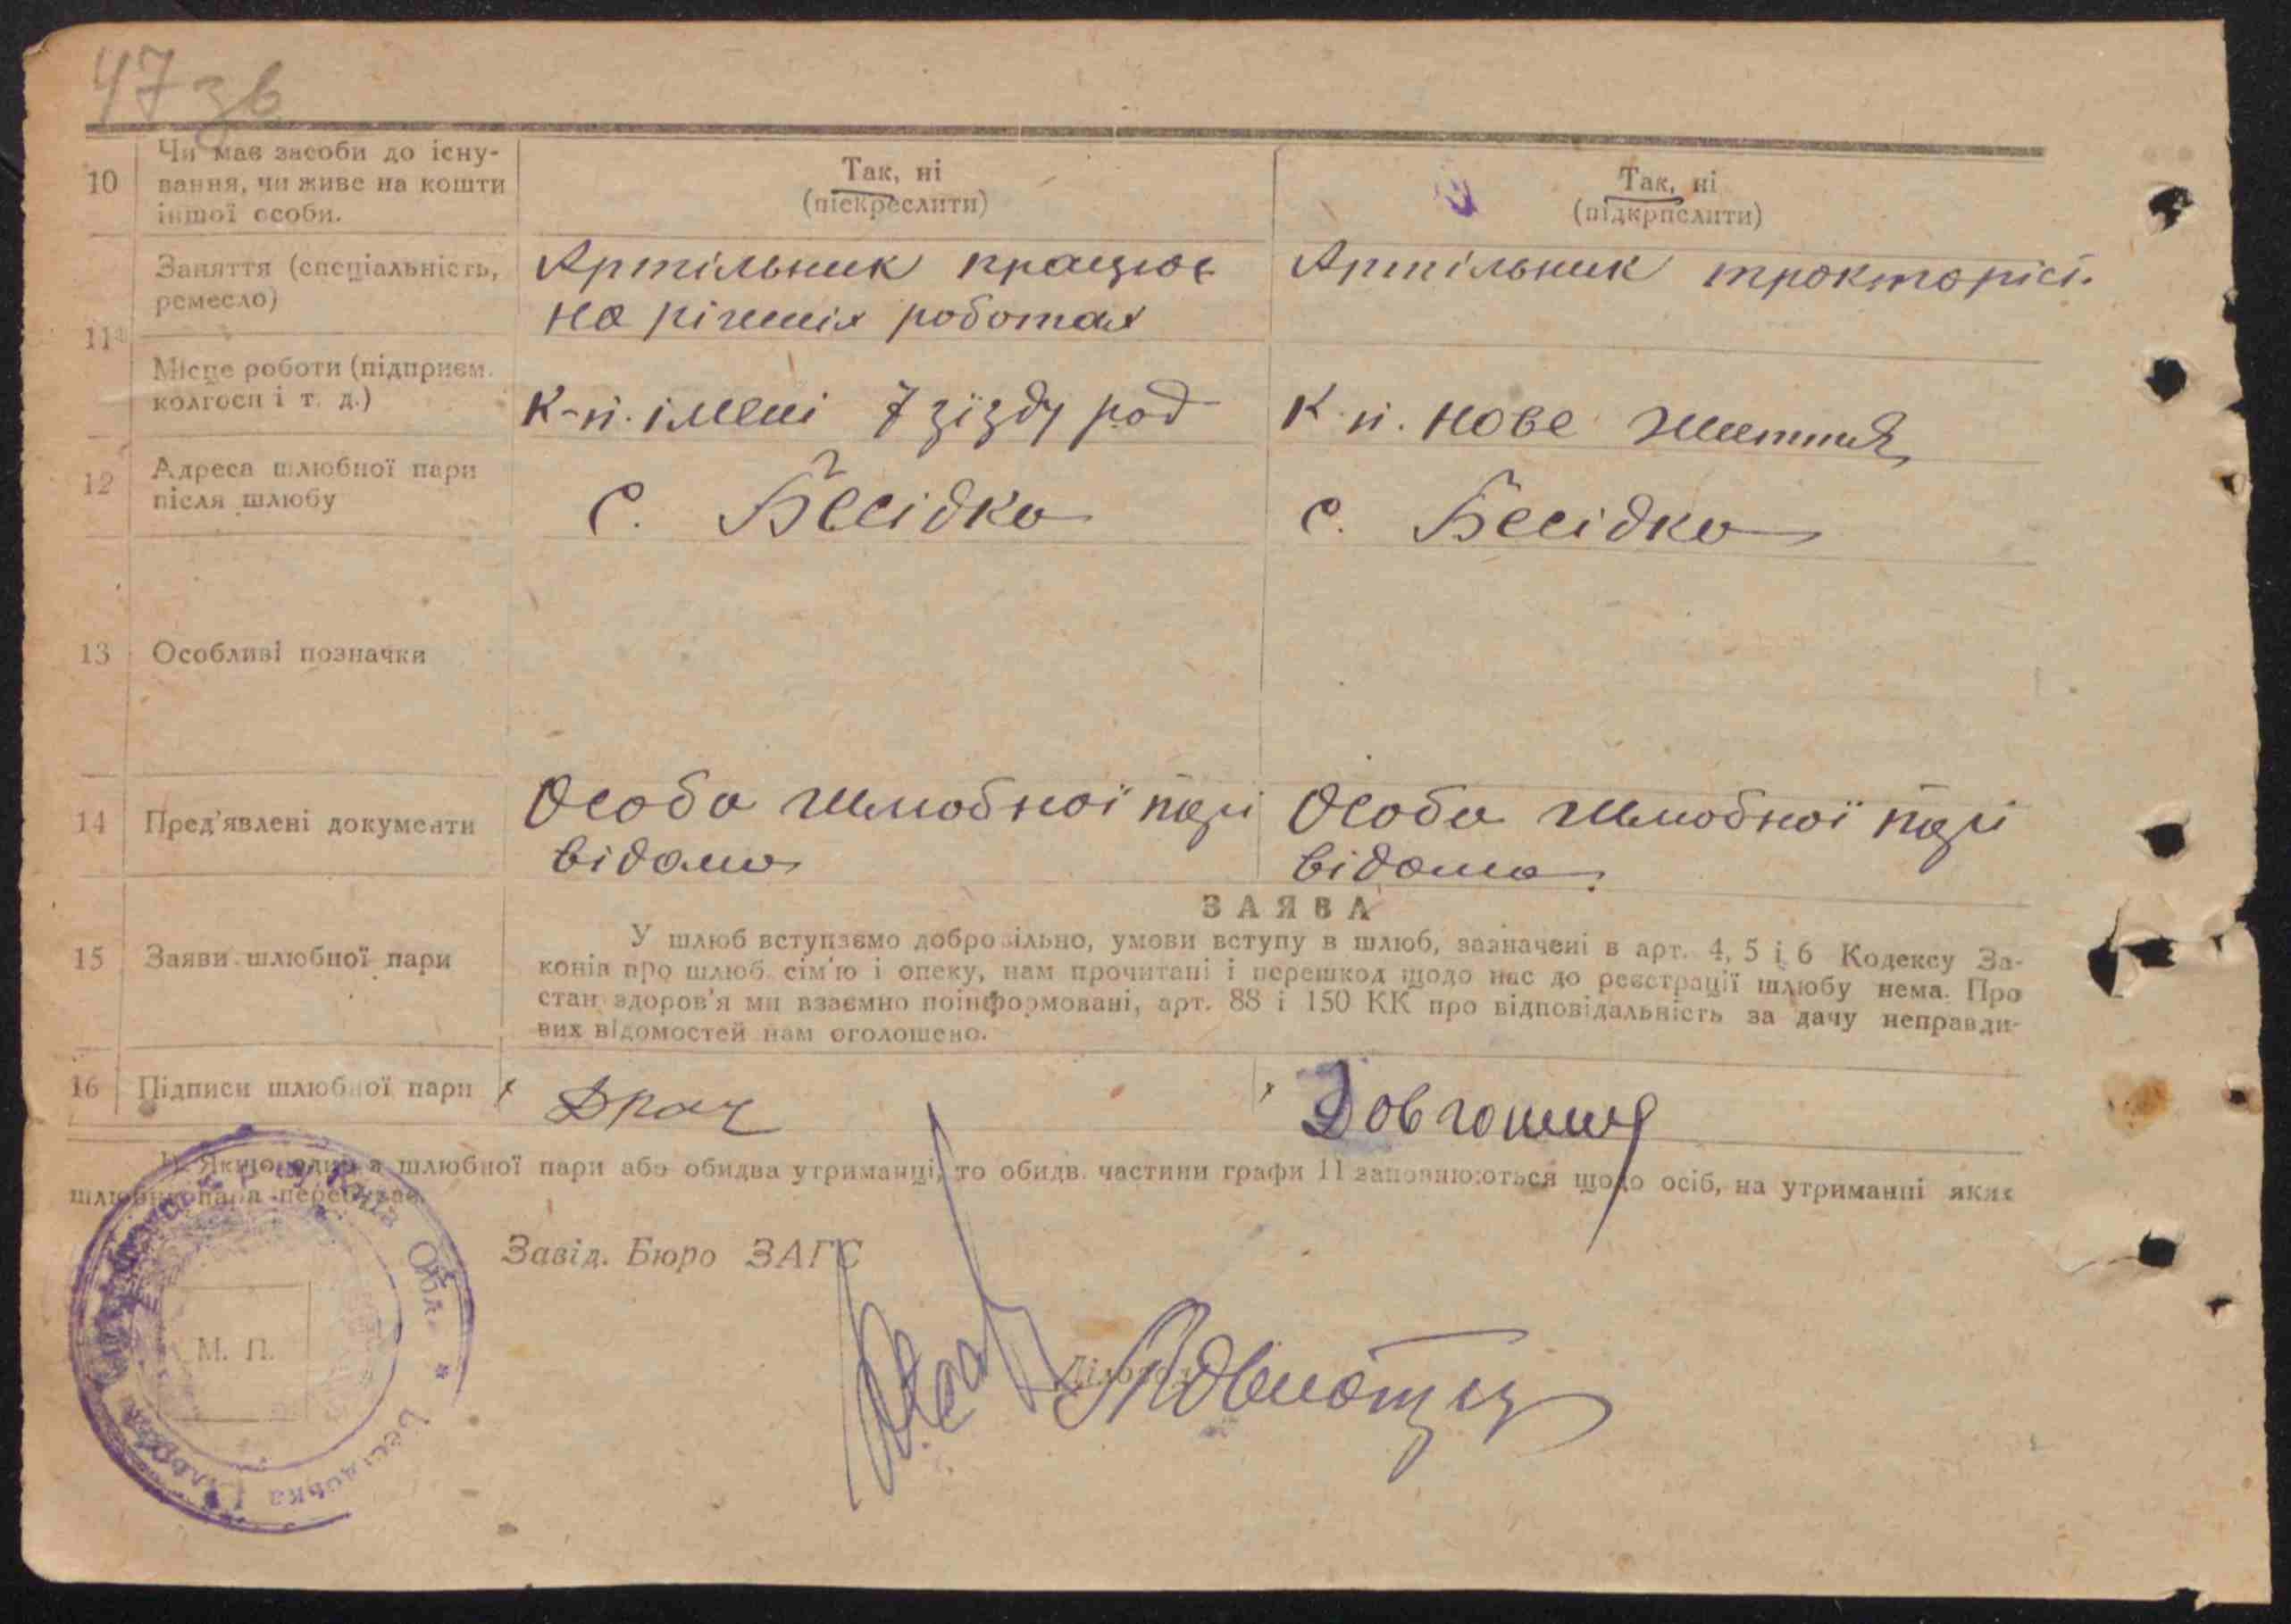 47 зв
10
Чи має засоби до існу-
вання, чи живе на кошти
іншої особи.
Так, ні
(піскреслити)
Так, ні
(підкрпслити)
11
Заняття (спеціальність,
ремесло)
Артільник працює
на різних роботах
Артільник тракторіст.
Місце роботи (підприєм.
колгосп і т. д.)
к-п. імені 7 зїзду рад
к-п. нове життя
12
Адреса шлюбної пари
після шлюбу
с. Бесідка
с. Бесідка
13
Особливі позначки
14
Пред'явлені документи
Особа шлюбної парі
відома
Особа шлюбної парі
відома.
ЗАЯВА
15
Заяви шлюбної пари
У шлюб вступаємо добровільно, умови вступу в шлюб, зазначені в арт. 4, 5 і 6 Кодексу За-
конів про шлюб сім'ю і опеку, нам прочитані і перешкод щодо нас до реєстрації шлюбу нема. Про
стан здоров'я ми взаємно поінформовані, арт. 88 і 150 КК про відповідальність за дачу неправди-
вих відомостей нам оголошено.
16
Підписи шлюбної пари
Драч
Довгошия
1) Якщо один з шлюбної пари або обидва утриманці, то обидв. частини графи 11 заповнюються щодо осіб, на утриманні яких
шлюбна пара перебуває.
Завід. Бюро ЗАГС
М. П.
Обл. * Бесідська